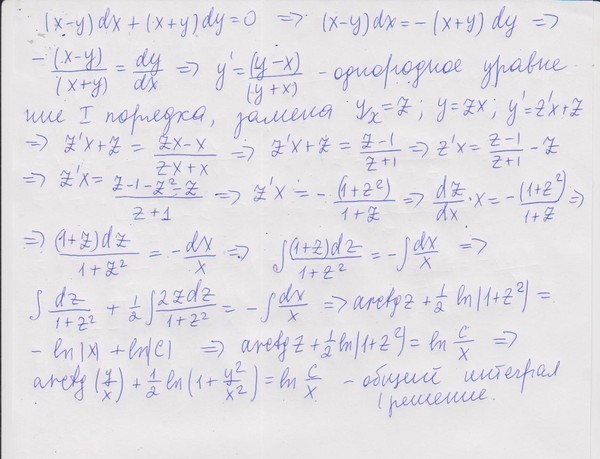 (x-y)dx + (x+y)dy = 0 ⇒ (x-y)dx = -(x+y)dy ⇒
-(x-y)/(x+y) = dy/dx ⇒ y' = (y-x)/(y+x) - однородное уравне
ние I порядка, замена y/x = z; y = zx; y' = z'x+z
⇒ z'x+z = (zx-x)/(zx+x) ⇒ z'x+z = (z-1)/(z+1) ⇒ z'x = (z-1)/(z+1) - z
⇒ z'x = (z-1-z²-z)/(z+1) ⇒ z'x = -(1+z²)/(1+z) ⇒ dz/dx · x = -(1+z²)/(1+z) ⇒
⇒ (1+z)dz/(1+z²) = -dx/x ⇒ ∫(1+z)dz/(1+z²) = -∫dx/x ⇒
∫dz/(1+z²) + 1/2 ∫2zdz/(1+z²) = -∫dx/x ⇒ arctg z + 1/2 ln|1+z²| =
- ln|x| + ln|C| ⇒ arctg z + 1/2 ln|1+z²| = ln C/x ⇒
arctg(y/x) + 1/2 ln(1 + y²/x²) = ln C/x - общий интеграл
решение.